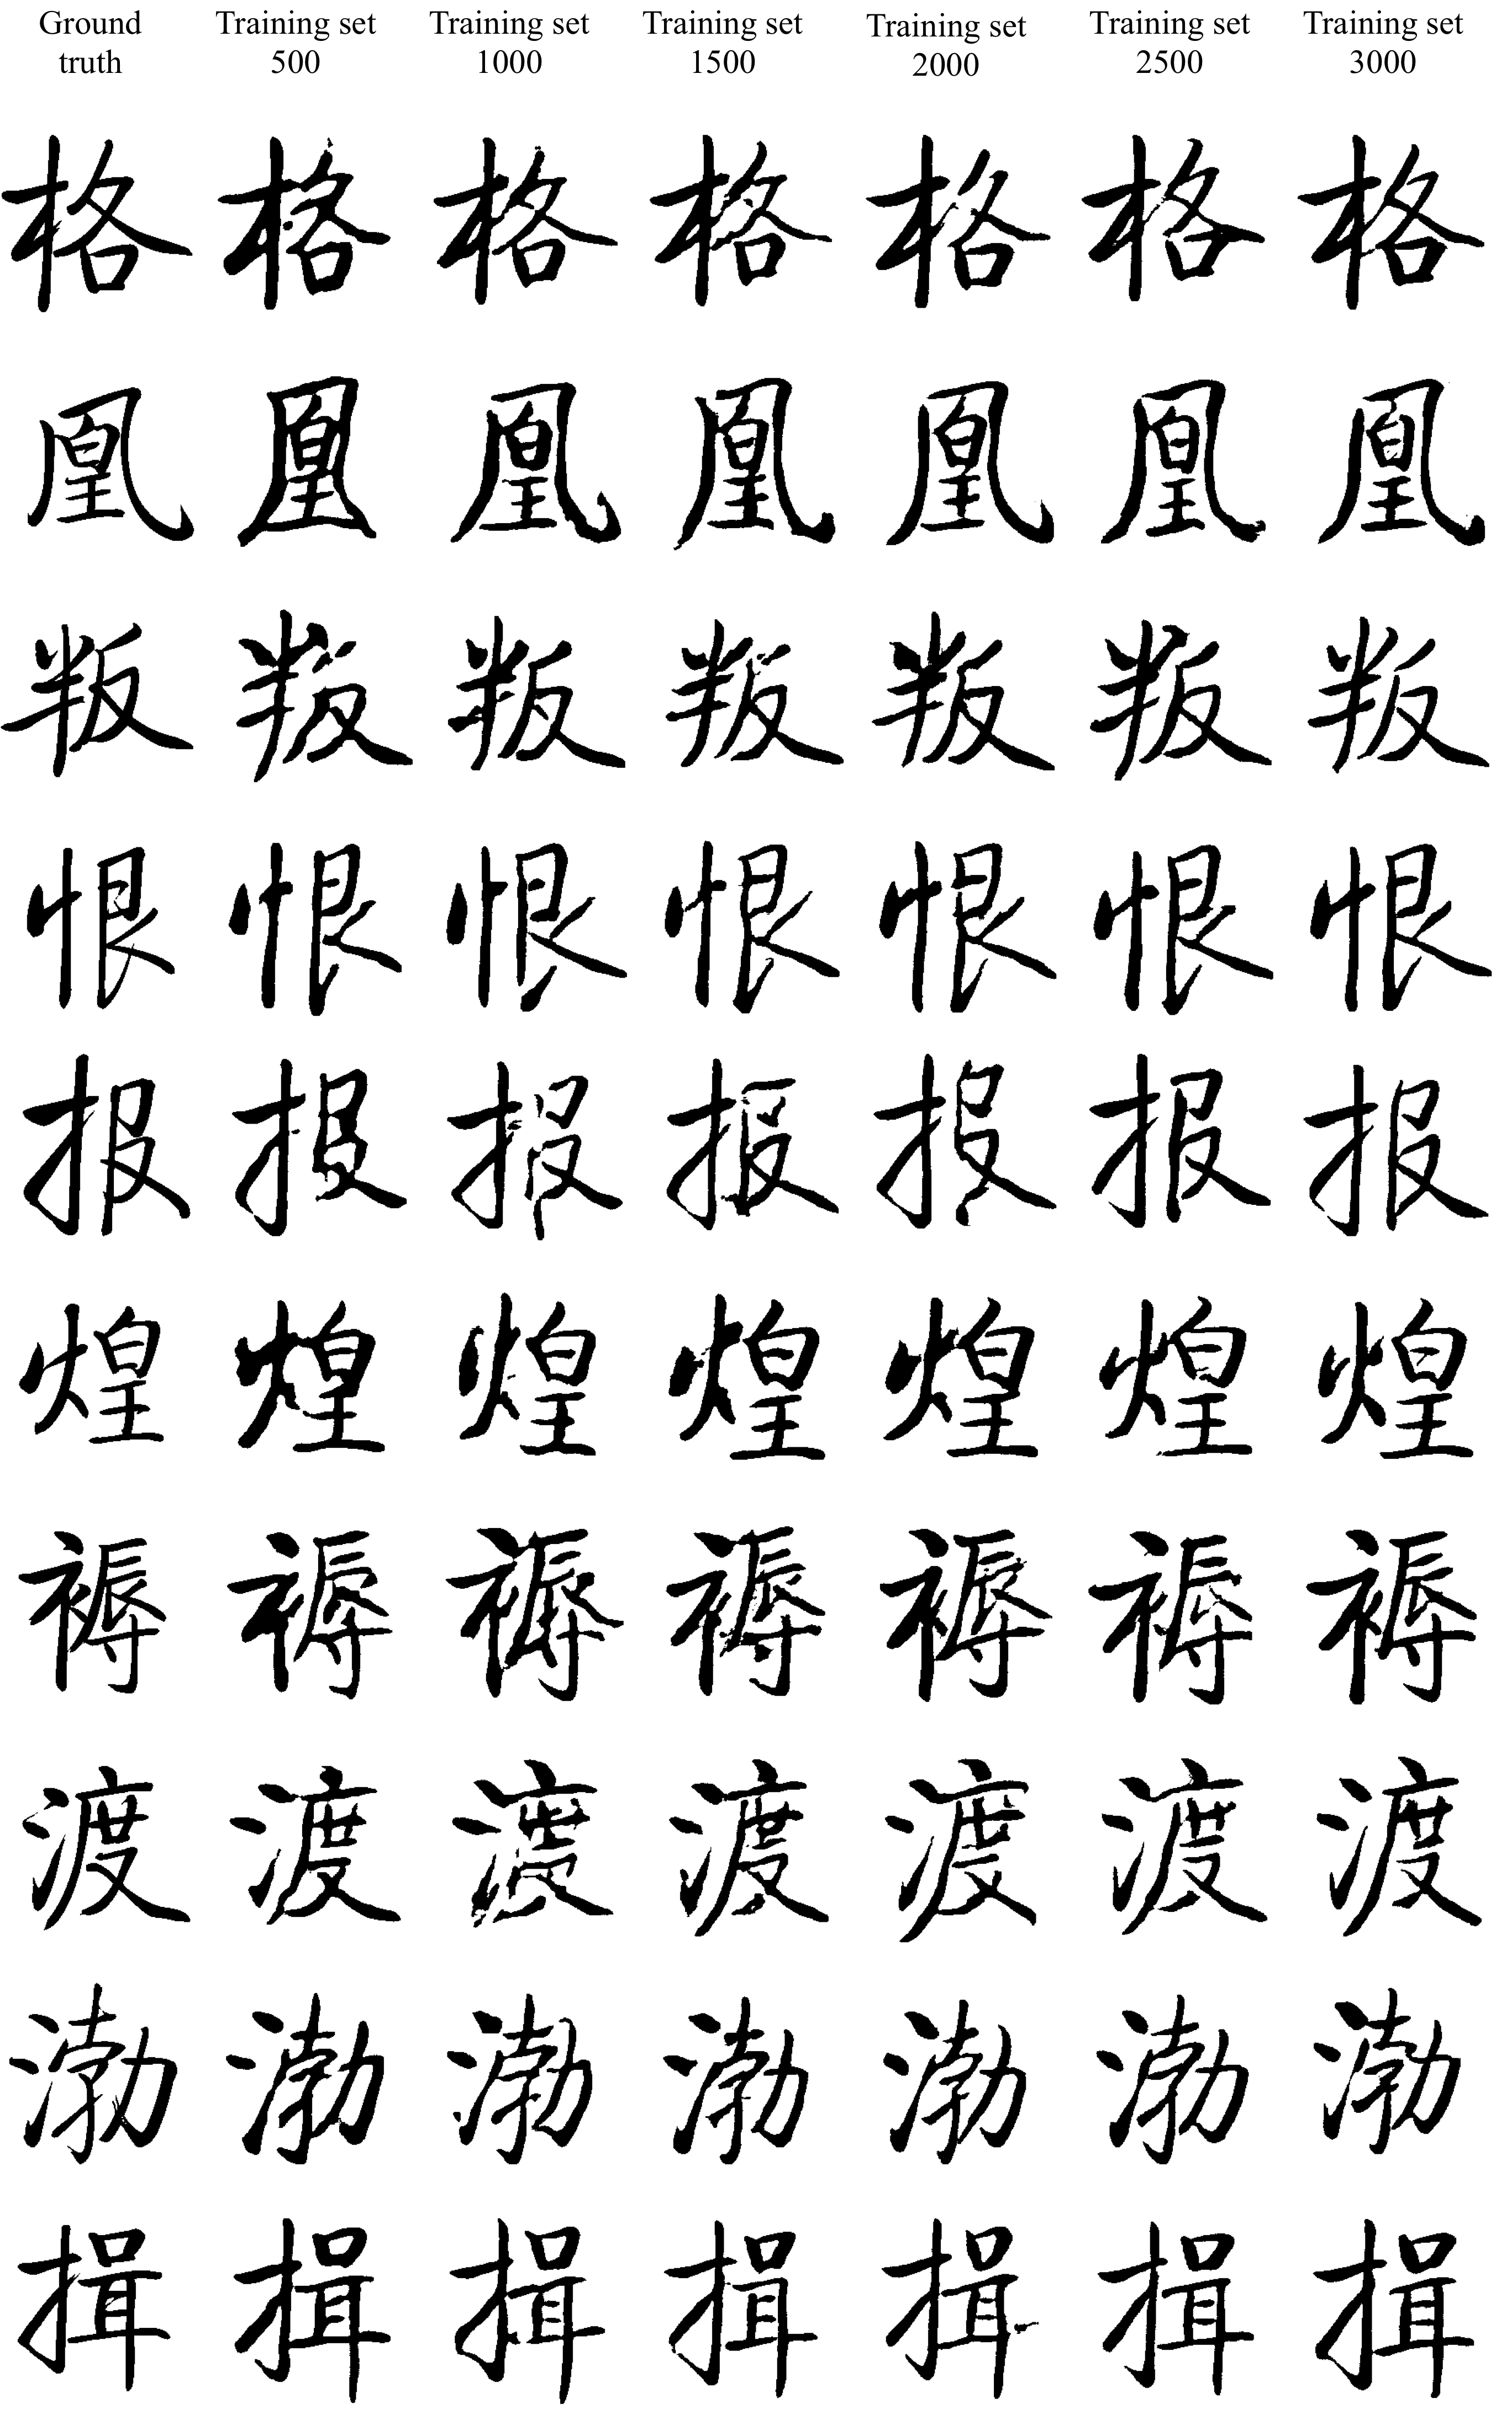 Ground truth Training set 500 Training set 1000 Training set 1500 Training set 2000 Training set 2500 Training set 3000
格 格 格 格 格 格 格
凰 凰 凰 凰 凰 凰 凰
叛 叛 叛 叛 叛 叛 叛
恨 恨 恨 恨 恨 恨 恨
报 报 报 报 报 报 报
煌 煌 煌 煌 煌 煌 煌
褥 褥 褥 褥 褥 褥 褥
渡 渡 渡 渡 渡 渡 渡
渤 渤 渤 渤 渤 渤 渤
揖 揖 揖 揖 揖 揖 揖